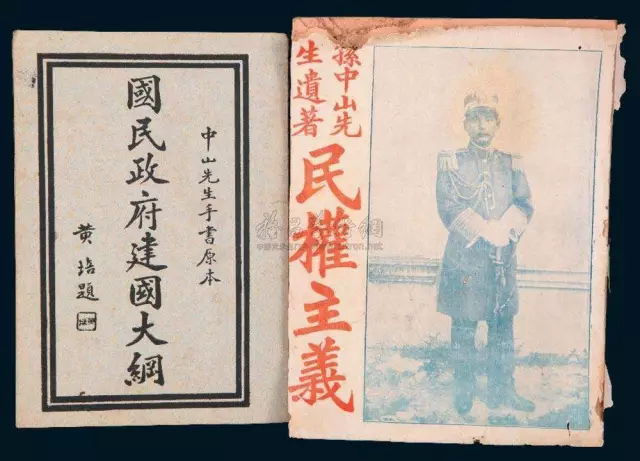 中山先生手書原本
國民政府建國大綱
黄培題
孫中山先
生遺著
民權主義